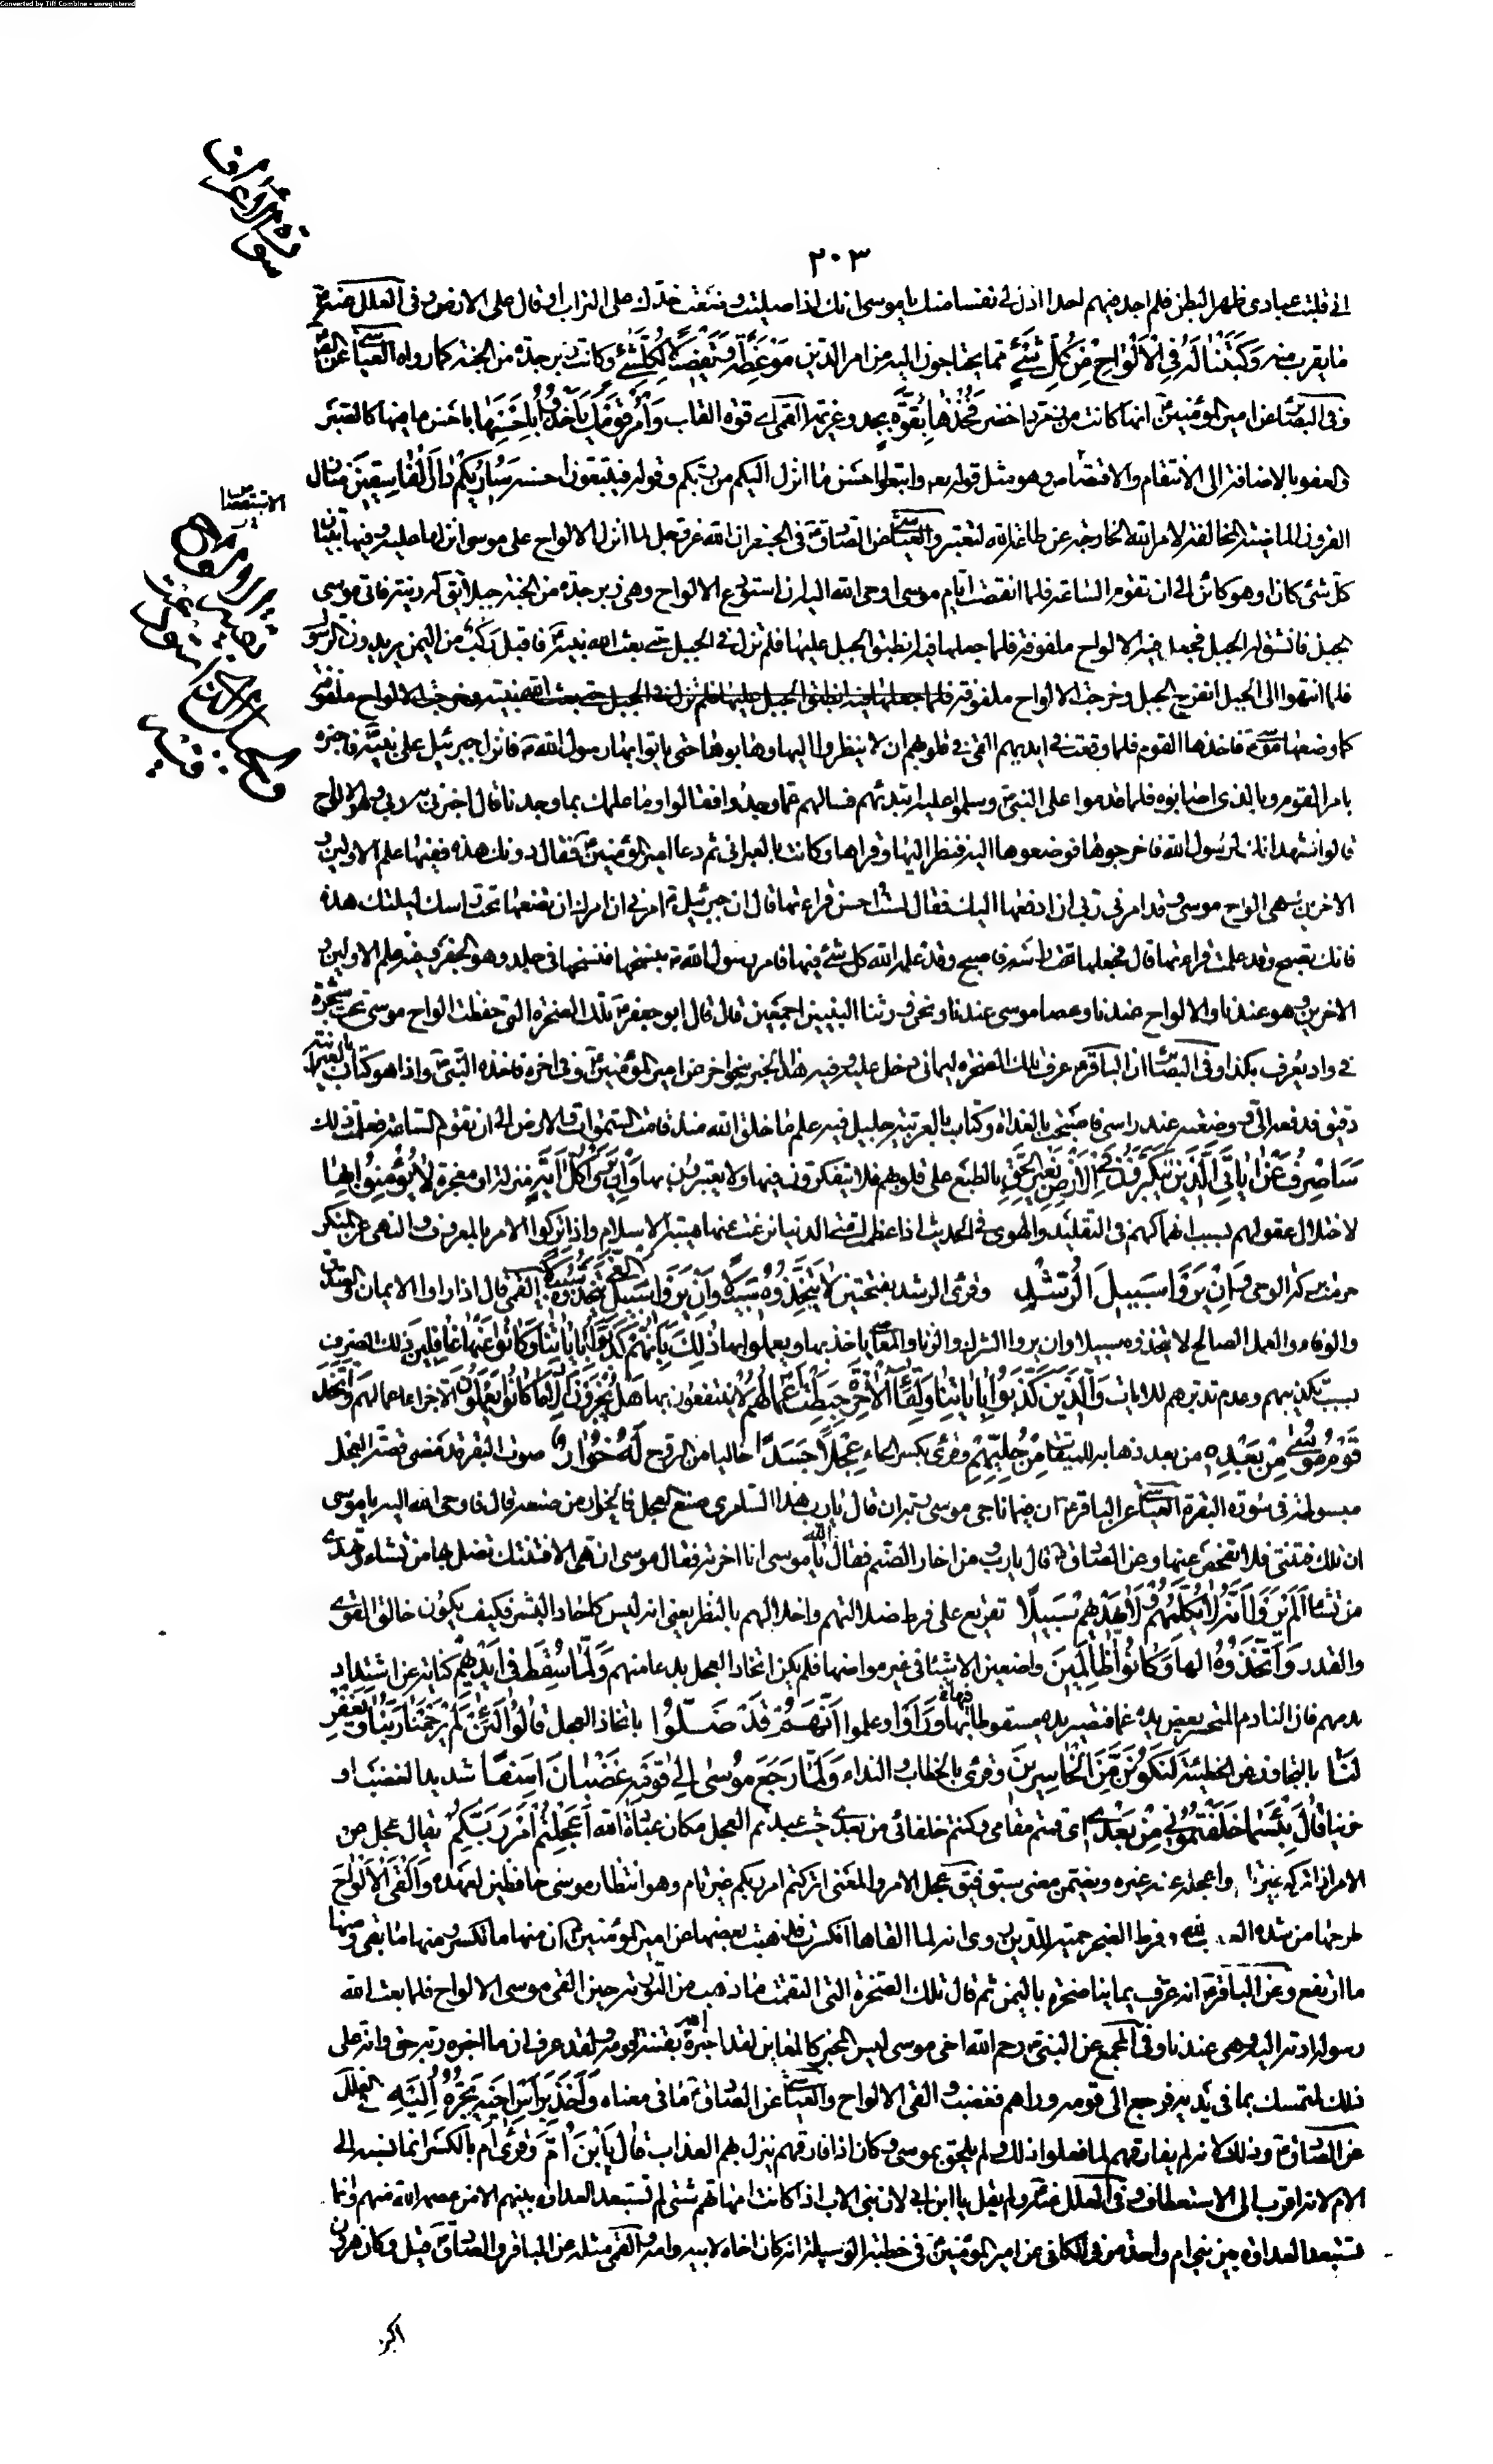 Converted by Tiff Combine - unregistered
سورة الاعراف
٢٠٣
اني قلبت عبادي ظهرا لبطن فلم اجد فيهم احدا اذل لي نفسا منك يا موسى انك اذا صليت وضعت خدك على التراب او قال على الارض وفي العلل عنه ع
ما يقرب منه وَكَتَبْنَا لَهُ فِي الْأَلْوَاحِ مِنْ كُلِّ شَيْءٍ مما يحتاجون اليه من امر الدين مَوْعِظَةً وَتَفْصِيلًا لِكُلِّ شَيْءٍ وكانت زبرجدة من الجنة كما رواه العياشي عن الصادق
وفي البصائر عن امير المؤمنين انها كانت من زمرد اخضر فَخُذْهَا بِقُوَّةٍ بجد وعزيمة القمي اي قوة القلب وَأْمُرْ قَوْمَكَ يَأْخُذُوا بِأَحْسَنِهَا باحسن ما فيها كالصبر
والعفو بالاضافة الى الانتقام والاقتصاص وهو مثل قوله تعه واتبعوا احسن ما انزل اليكم من ربكم وقوله فيتبعون احسنه سَأُرِيكُمْ دَارَ الْفَاسِقِينَ منازل
القرون الماضية المخالفة لامر الله الخارجة عن طاعة الله لتعتبروا العياشي عن الصادق في الجفر ان الله عز وجل لما انزل الالواح على موسى انزلها عليه وفيها تبيان
كل شئ كان او هو كائن الى ان تقوم الساعة فلما انقضت ايام موسى اوحى الله اليه ان استودع الالواح وهي زبرجدة من الجنة جبلا يقال له زينة فاتى موسى
الجبل فانشق له الجبل فجعل فيه الالواح ملفوفة فلما جعلها فيه انطبق الجبل عليها فلم تزل في الجبل حتى بعث الله نبيه فاقبل ركب من اليمن يريدون الرسول
فلما انتهوا الى الجبل انفرج الجبل وخرجت الالواح ملفوفة
كما وضعها موسى فاخذها القوم فلما وقعت في ايديهم القى في قلوبهم ان لا ينظروا اليها وهابوها حتى ياتوا بها رسول الله ص فانزل جبرئيل على نبيه فاخبره
بامر القوم وبالذي اصابوه فلما قدموا على النبي وسلموا عليه ابتدئهم فسالهم عما وجدوا فقالوا وما علمك بما وجدنا قال اخبرني به ربي وهو الالواح
قالوا نشهد انك لرسول الله فاخرجوها فوضعوها اليه فنظر اليها وقراها وكانت بالعبراني ثم دعا امير المؤمنين فقال دونك هذه ففيها علم الاولين و
الاخرين وهي الواح موسى وقد امرني ربي ان ادفعها اليك فقال لست احسن قراءتها قال ان جبرئيل امرني ان امرك ان تضعها تحت راسك ليلتك هذه
فانك تصبح وقد علمت قراءتها قال فجعلها تحت راسه فاصبح وقد علمه الله كل شئ فيها فامره رسول الله ص بنسخها فنسخها في جلد وهو الجفر وفيه علم الاولين و
الاخرين وهو عندنا والالواح عندنا وعصا موسى عندنا ونحن ورثنا النبيين اجمعين قال قال ابو جعفر تلك الصخرة التي حفظت الواح موسى تحت شجرة
في واد يعرف بكذا وفي البصائر ان الباقر ع عرف تلك الصخرة ليماني دخل عليه وفيه هذا الخبر بنحو اخر عن امير المؤمنين وفي اخره فاخذه النبي واذا هو كتاب بالعبرانية
دقيق فدفعه الي ووضعته عند راسي فاصبحت بالغداة وكتاب بالعربية جليل فيه علم ما خلق الله منذ قامت السموات والارض الى ان تقوم الساعة فعلمت ذلك
سَأَصْرِفُ عَنْ آيَاتِيَ الَّذِينَ يَتَكَبَّرُونَ فِي الْأَرْضِ بِغَيْرِ الْحَقِّ بالطبع على قلوبهم فلا يتفكرون فيها ولا يعتبرون بها وَإِنْ يَرَوْا كُلَّ آيَةٍ منزلة او معجزة لَا يُؤْمِنُوا بِهَا
لاختلال عقولهم بسبب انهماكهم في التقليد والهوى في الحديث اذا عظمت امتي الدنيا نزعت عنها هيبة الاسلام واذا تركوا الامر بالمعروف والنهي عن المنكر
حرمت بركة الوحي وَإِنْ يَرَوْا سَبِيلَ الرُّشْدِ وقرئ الرشد بفتحتين لَا يَتَّخِذُوهُ سَبِيلًا وَإِنْ يَرَوْا سَبِيلَ الْغَيِّ يَتَّخِذُوهُ سَبِيلًا القمي قال اذا راوا الايمان والصدق
والوفاء والعمل الصالح لا يتخذوه سبيلا وان يروا الشرك والزنا والمعاصي ياخذ بها ويعملوا بها ذَلِكَ بِأَنَّهُمْ كَذَّبُوا بِآيَاتِنَا وَكَانُوا عَنْهَا غَافِلِينَ ذلك الصرف
بسبب تكذيبهم وعدم تدبرهم للايات وَالَّذِينَ كَذَّبُوا بِآيَاتِنَا وَلِقَاءِ الْآخِرَةِ حَبِطَتْ أَعْمَالُهُمْ لا ينتفعون بها هَلْ يُجْزَوْنَ إِلَّا مَا كَانُوا يَعْمَلُونَ الا جزاء اعمالهم وَاتَّخَذَ
قَوْمُ مُوسَى مِنْ بَعْدِهِ من بعد ذهابه للميقات مِنْ حُلِيِّهِمْ وقرئ بكسر الحاء عِجْلًا جَسَدًا خاليا من الروح لَهُ خُوَارٌ صوت البقر قد مضى قصة العجل
مبسوطة في سورة البقرة العياشي عن الباقر ع ان فيما ناجى موسى ربه ان قال يا رب هذا السامري صنع العجل فالخوار من صنعه قال فاوحى الله اليه يا موسى
ان تلك فتنتي فلا تفحص عنها وعن الصادق ع قال يا رب ومن اخار الصنم فقال الله يا موسى انا اخرته فقال موسى ان هي الا فتنتك تضل بها من تشاء وتهدي
من تشاء أَلَمْ يَرَوْا أَنَّهُ لَا يُكَلِّمُهُمْ وَلَا يَهْدِيهِمْ سَبِيلًا تقريع على فرط ضلالتهم واخلالهم بالنظر يعني انه ليس كاحاد البشر فكيف يكون خالق القوى
والقدر وَاتَّخَذُوهُ الها وَكَانُوا ظَالِمِينَ واضعين الاشيئا في غير مواضعها فلم يكن اتخاذ العجل بدعا منهم وَلَمَّا سُقِطَ فِي أَيْدِيهِمْ كناية عن اشتداد
ندمهم فان النادم المتحسر يعض يده غما فتصير يده مسقوطا فيها وَرَأَوْا وعلموا أَنَّهُمْ قَدْ ضَلُّوا باتخاذ العجل قَالُوا لَئِنْ لَمْ يَرْحَمْنَا رَبُّنَا وَيَغْفِرْ
لَنَا بالتجاوز عن الخطيئة لَنَكُونَنَّ مِنَ الْخَاسِرِينَ وقرئ بالخطاب والنداء وَلَمَّا رَجَعَ مُوسَى إِلَى قَوْمِهِ غَضْبَانَ أَسِفًا شديد الغضب او
حزينا قَالَ بِئْسَمَا خَلَفْتُمُونِي مِنْ بَعْدِي اي قمتم مقامي وكنتم خلفائي من بعدي حيث عبدتم العجل مكان عبادة الله أَعَجِلْتُمْ أَمْرَ رَبِّكُمْ يقال عجل عن
الامر اذا تركه غير تام واعجله عنه غيره ويضمن معنى سبق فيق عجل الامر والمعنى اتركتم امر ربكم غير تام وهو انتظار موسى حافظين لعهده وَأَلْقَى الْأَلْوَاحَ
طرحها من شدة الغضب لله وفرط الضجر حمية للدين روى انه لما القاها انكسرت فذهبت بعضها عن امير المؤمنين ان منها ما تكسر ومنها ما بقى ومنها
ما ارتفع وعن الباقر ع انه عرف يمانيا صخرة باليمن ثم قال تلك الصخرة التي التقمت ما ذهب من التورية حين القى موسى الالواح فلما بعث الله
رسوله ادته اليه وهي عندنا وفي المجمع عن النبي ص رحم الله اخي موسى ليس المخبر كالمعاين لقد اخبره الله بفتنة قومه ولقد عرف ان ما اخبره ربه حق وانه على
ذلك لمتمسك بما في يديه فرجع الى قومه وراهم فغضب والقى الالواح والعياشي عن الصادق ع ما في معناه وَأَخَذَ بِرَأْسِ أَخِيهِ يَجُرُّهُ إِلَيْهِ في العلل
عن الصادق ع وذلك لانه لم يفارقهم لما فعلوا ذلك ولم يلحق بموسى وكان اذا فارقهم ينزل بهم العذاب قَالَ يَا ابْنَ أُمَّ وقرئ ام بالكسر انما نسبه الى
الام لانه اقرب الى الاستعطاف وفي العلل عنه ولم يقل يا ابن ابي لان بني الاب اذا كانت امهاتهم شتى لم تستبعد العداوة بينهم الا من عصمه الله منهم وانما
تستبعد العداوة بين بني ام واحدة وفي الكافي عن امير المؤمنين في خطبة الوسيلة انه كان اخاه لابيه وامه والقمي مثله عن الباقر والصادق قيل وكان هرون
اكبر